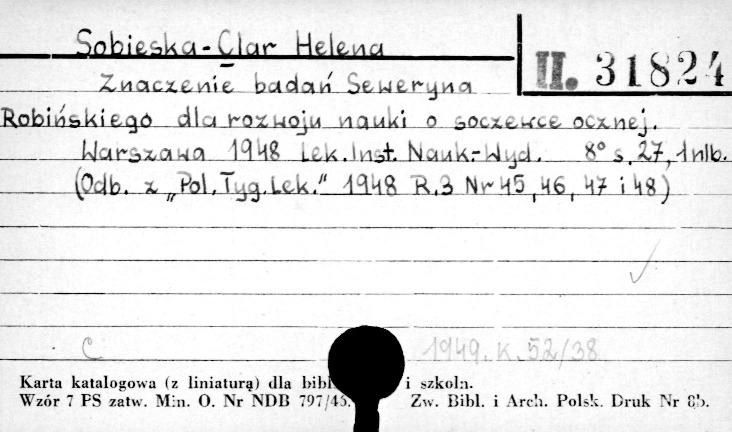 Sobieska-Clar Helena
II. 31824
Znaczenie badań Seweryna
Robińskiego dla rozwoju nauki o soczewce ocznej.
Warszawa 1948 Lek. Inst. Nauk.-Wyd. 8° s. 27, 1 nlb.
(Odb. z „Pol. Tyg. Lek." 1948 R. 3 Nr 45, 46, 47 i 48)
C 1949. K. 52/38
Karta katalogowa (z liniaturą) dla bibl i szkoln.
Wzór 7 PS zatw. Min. O. Nr NDB 797/45. Zw. Bibl. i Arch. Polsk. Druk Nr 8b.